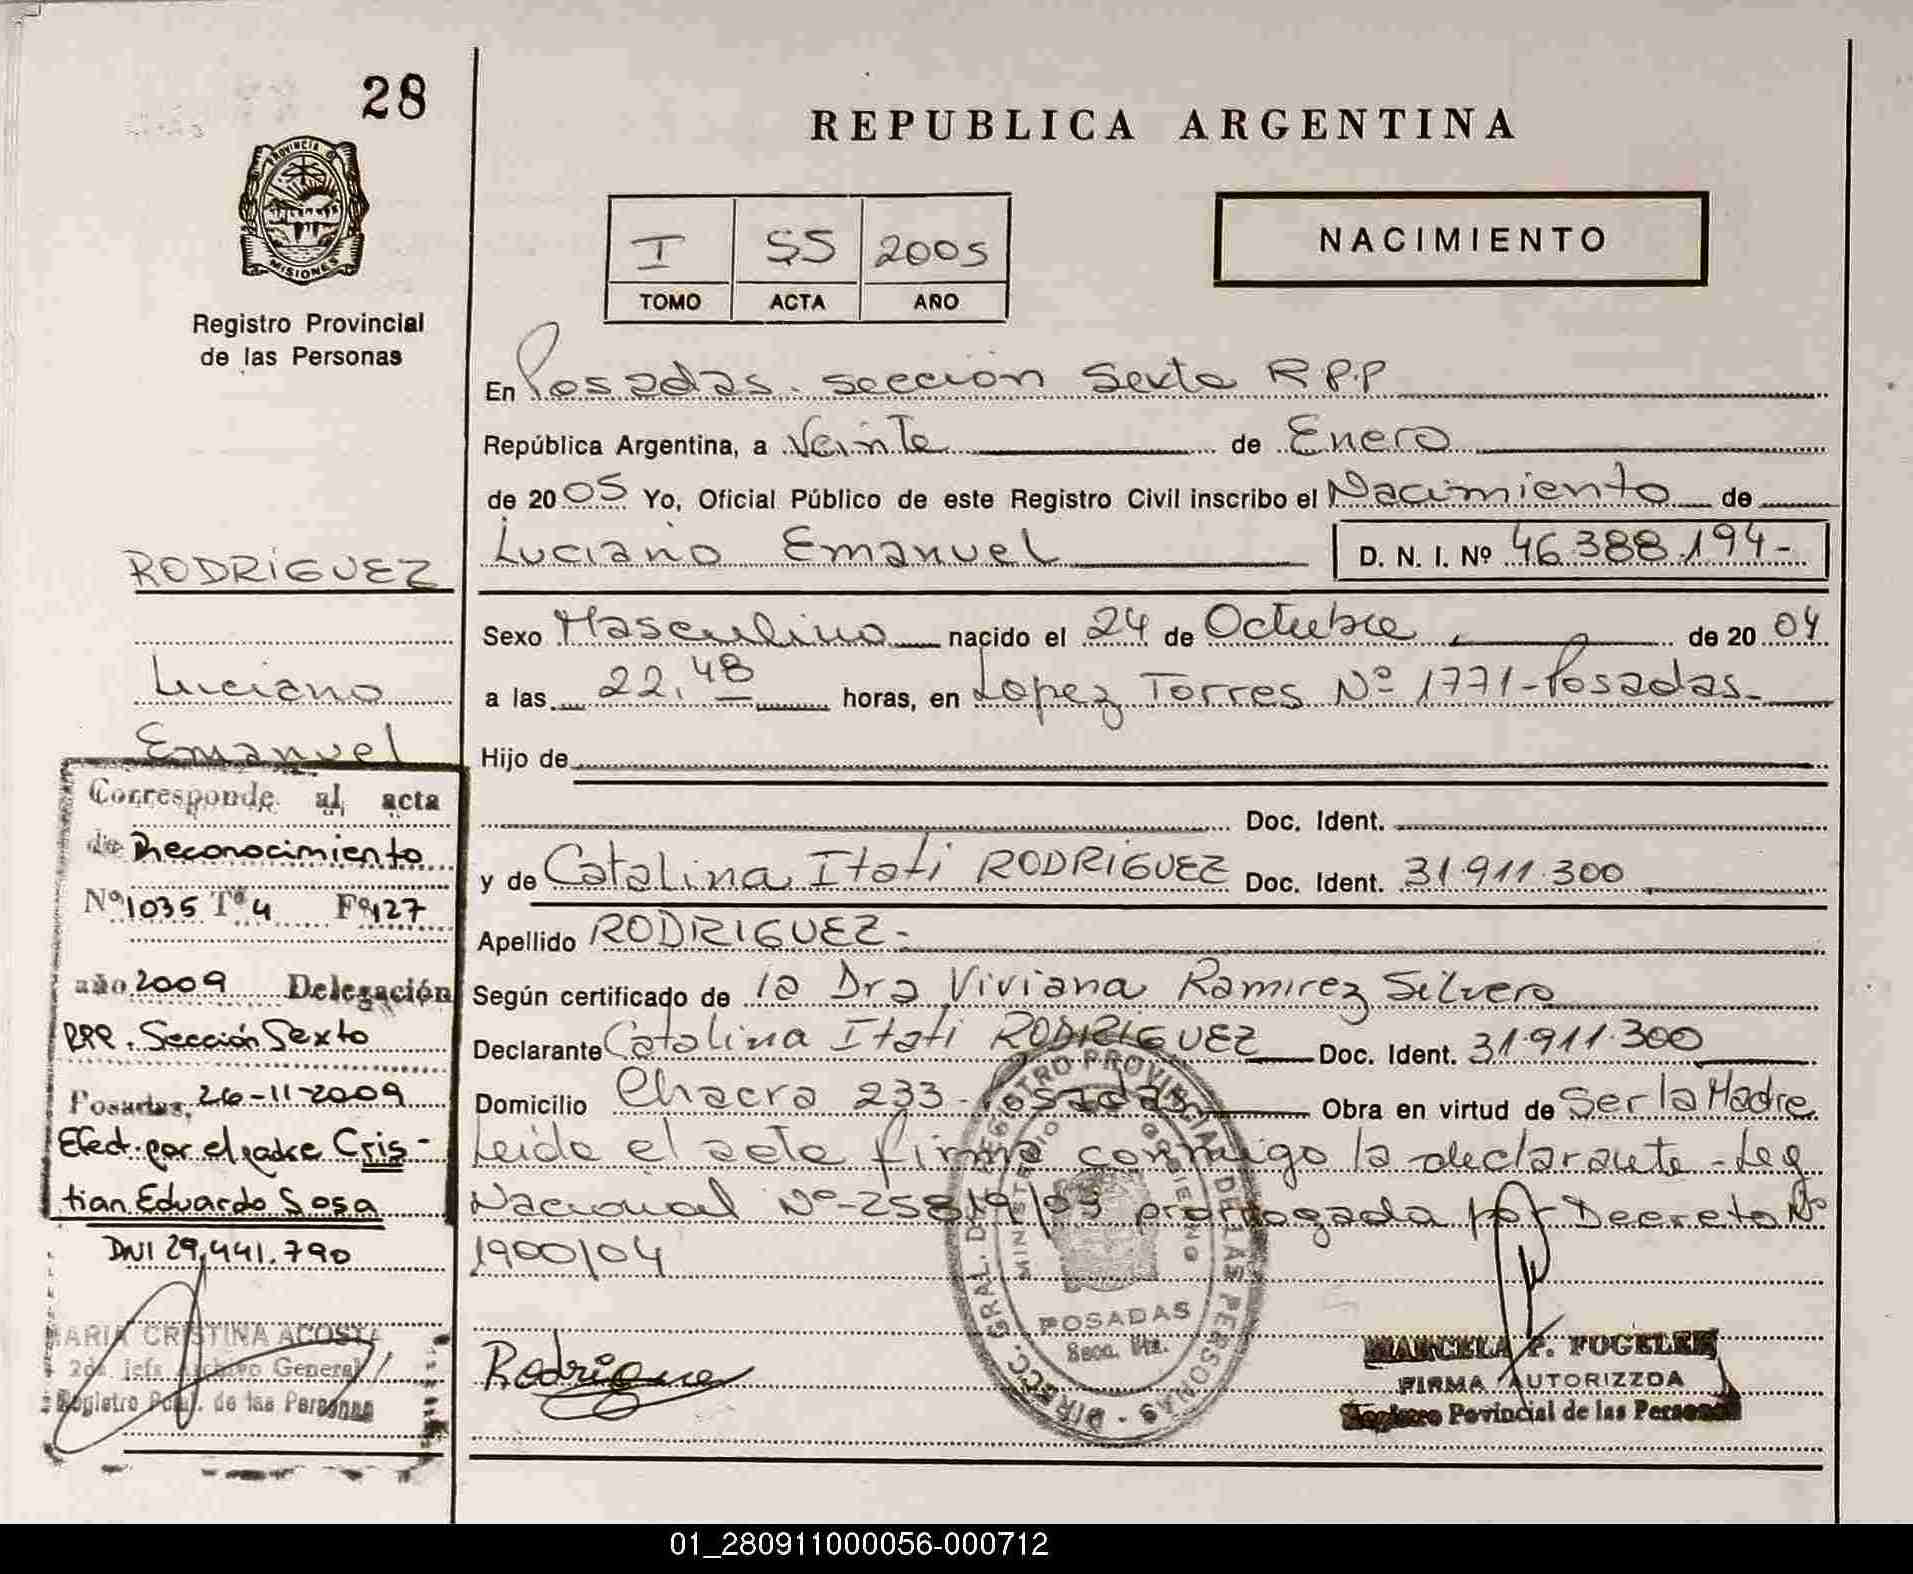 28
REPUBLICA ARGENTINA
PROVINCIA D
MISIONES
Registro Provincial
de las Personas
I 55 2005
TOMO ACTA AÑO
NACIMIENTO
En Posadas. sección Sexta R.P.P
República Argentina, a Veinte de Enero
de 2005 Yo, Oficial Público de este Registro Civil inscribo el Nacimiento de
Luciano Emanuel D. N. I. Nº 46.388.194-
Sexo Masculino nacido el 24 de Octubre de 2004
a las 22,48 horas, en Lopez Torres Nº 1771-Posadas-
Hijo de
Doc. Ident.
y de Catalina Itati RODRIGUEZ Doc. Ident. 31.911.300
Apellido RODRIGUEZ-
Según certificado de la Dra Viviana Ramirez Silvero
Declarante Catalina Itati RODRIGUEZ Doc. Ident. 31.911.300
Domicilio Chacra 233-Posadas Obra en virtud de Ser la Madre
Leida el acta firma conmigo la declarante-Ley
Nacional Nº-25819/03 prorrogada por Decreto Nº
1900/04
RODRÍGUEZ
Luciano
Emanuel
Corresponde al acta
de Reconocimiento
Nº 1035 Tº 4 Fº 127
año 2009 Delegación
RPP. Sección Sexto
Posadas, 26-11-2009
Efect. por el padre Cris-
tian Eduardo Sosa
DNI 29.441.790
MARIA CRISTINA ACOSTA
2da. jefa Archivo General
Registro Pcial. de las Personas
Rodrigue
DIRECC. GRAL. DEL REGISTRO PROVINCIAL DE LAS PERSONAS -
MINISTERIO GOBIERNO
POSADAS
Secc.
MARCELA P. FOGELER
FIRMA AUTORIZZDA
Registro Povincial de las Personas
01_280911000056-000712